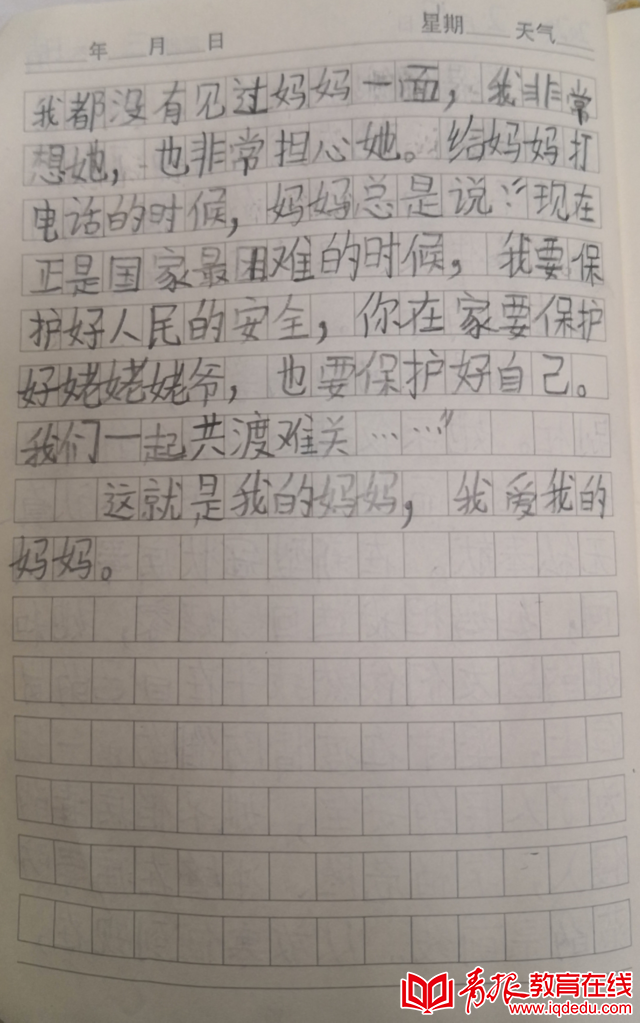 年 月 日 星期 天气
我都没有见过妈妈一面，我非常
想她，也非常担心她。给妈妈打
电话的时候，妈妈总是说：“现在
正是国家最困难的时候，我要保
护好人民的安全，你在家要保护
好姥姥姥爷，也要保护好自己。
我们一起共渡难关……”
这就是我的妈妈，我爱我的
妈妈。
青报教育在线
www.iqdedu.com